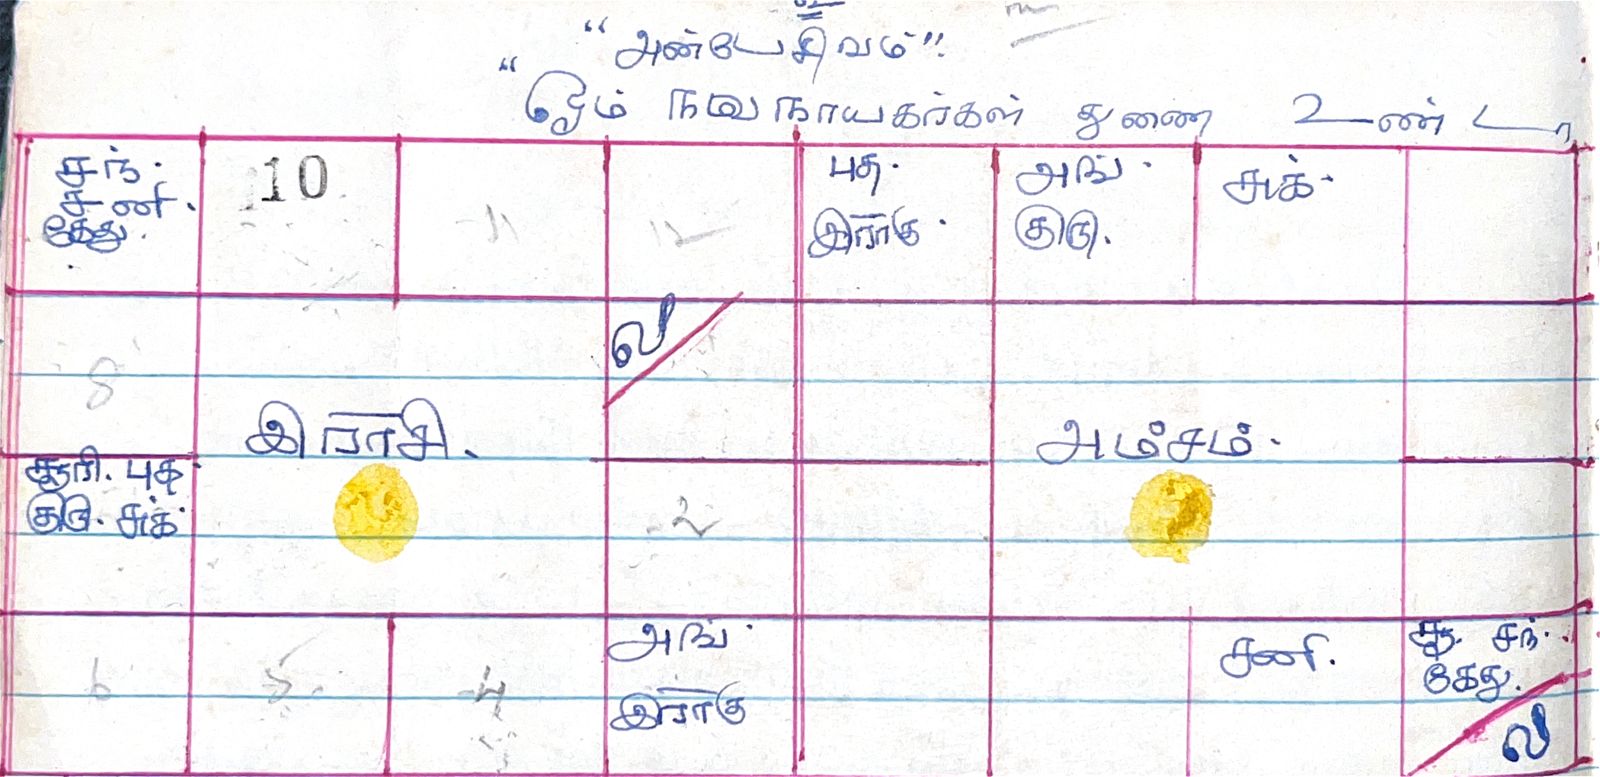 "அன்பே சிவம்".
"ஓம் நவநாயகர்கள் துணை உண்டா
சந். 10 11 12 புத. அங். சுக்.
சனி. இராகு. குரு.
கேது.
ல
8
இராசி. அம்சம்.
சூரி. புத.
குரு. சுக். 2
6 5. 4 அங். சனி. சூ. சந்.
இராகு கேது.
ல